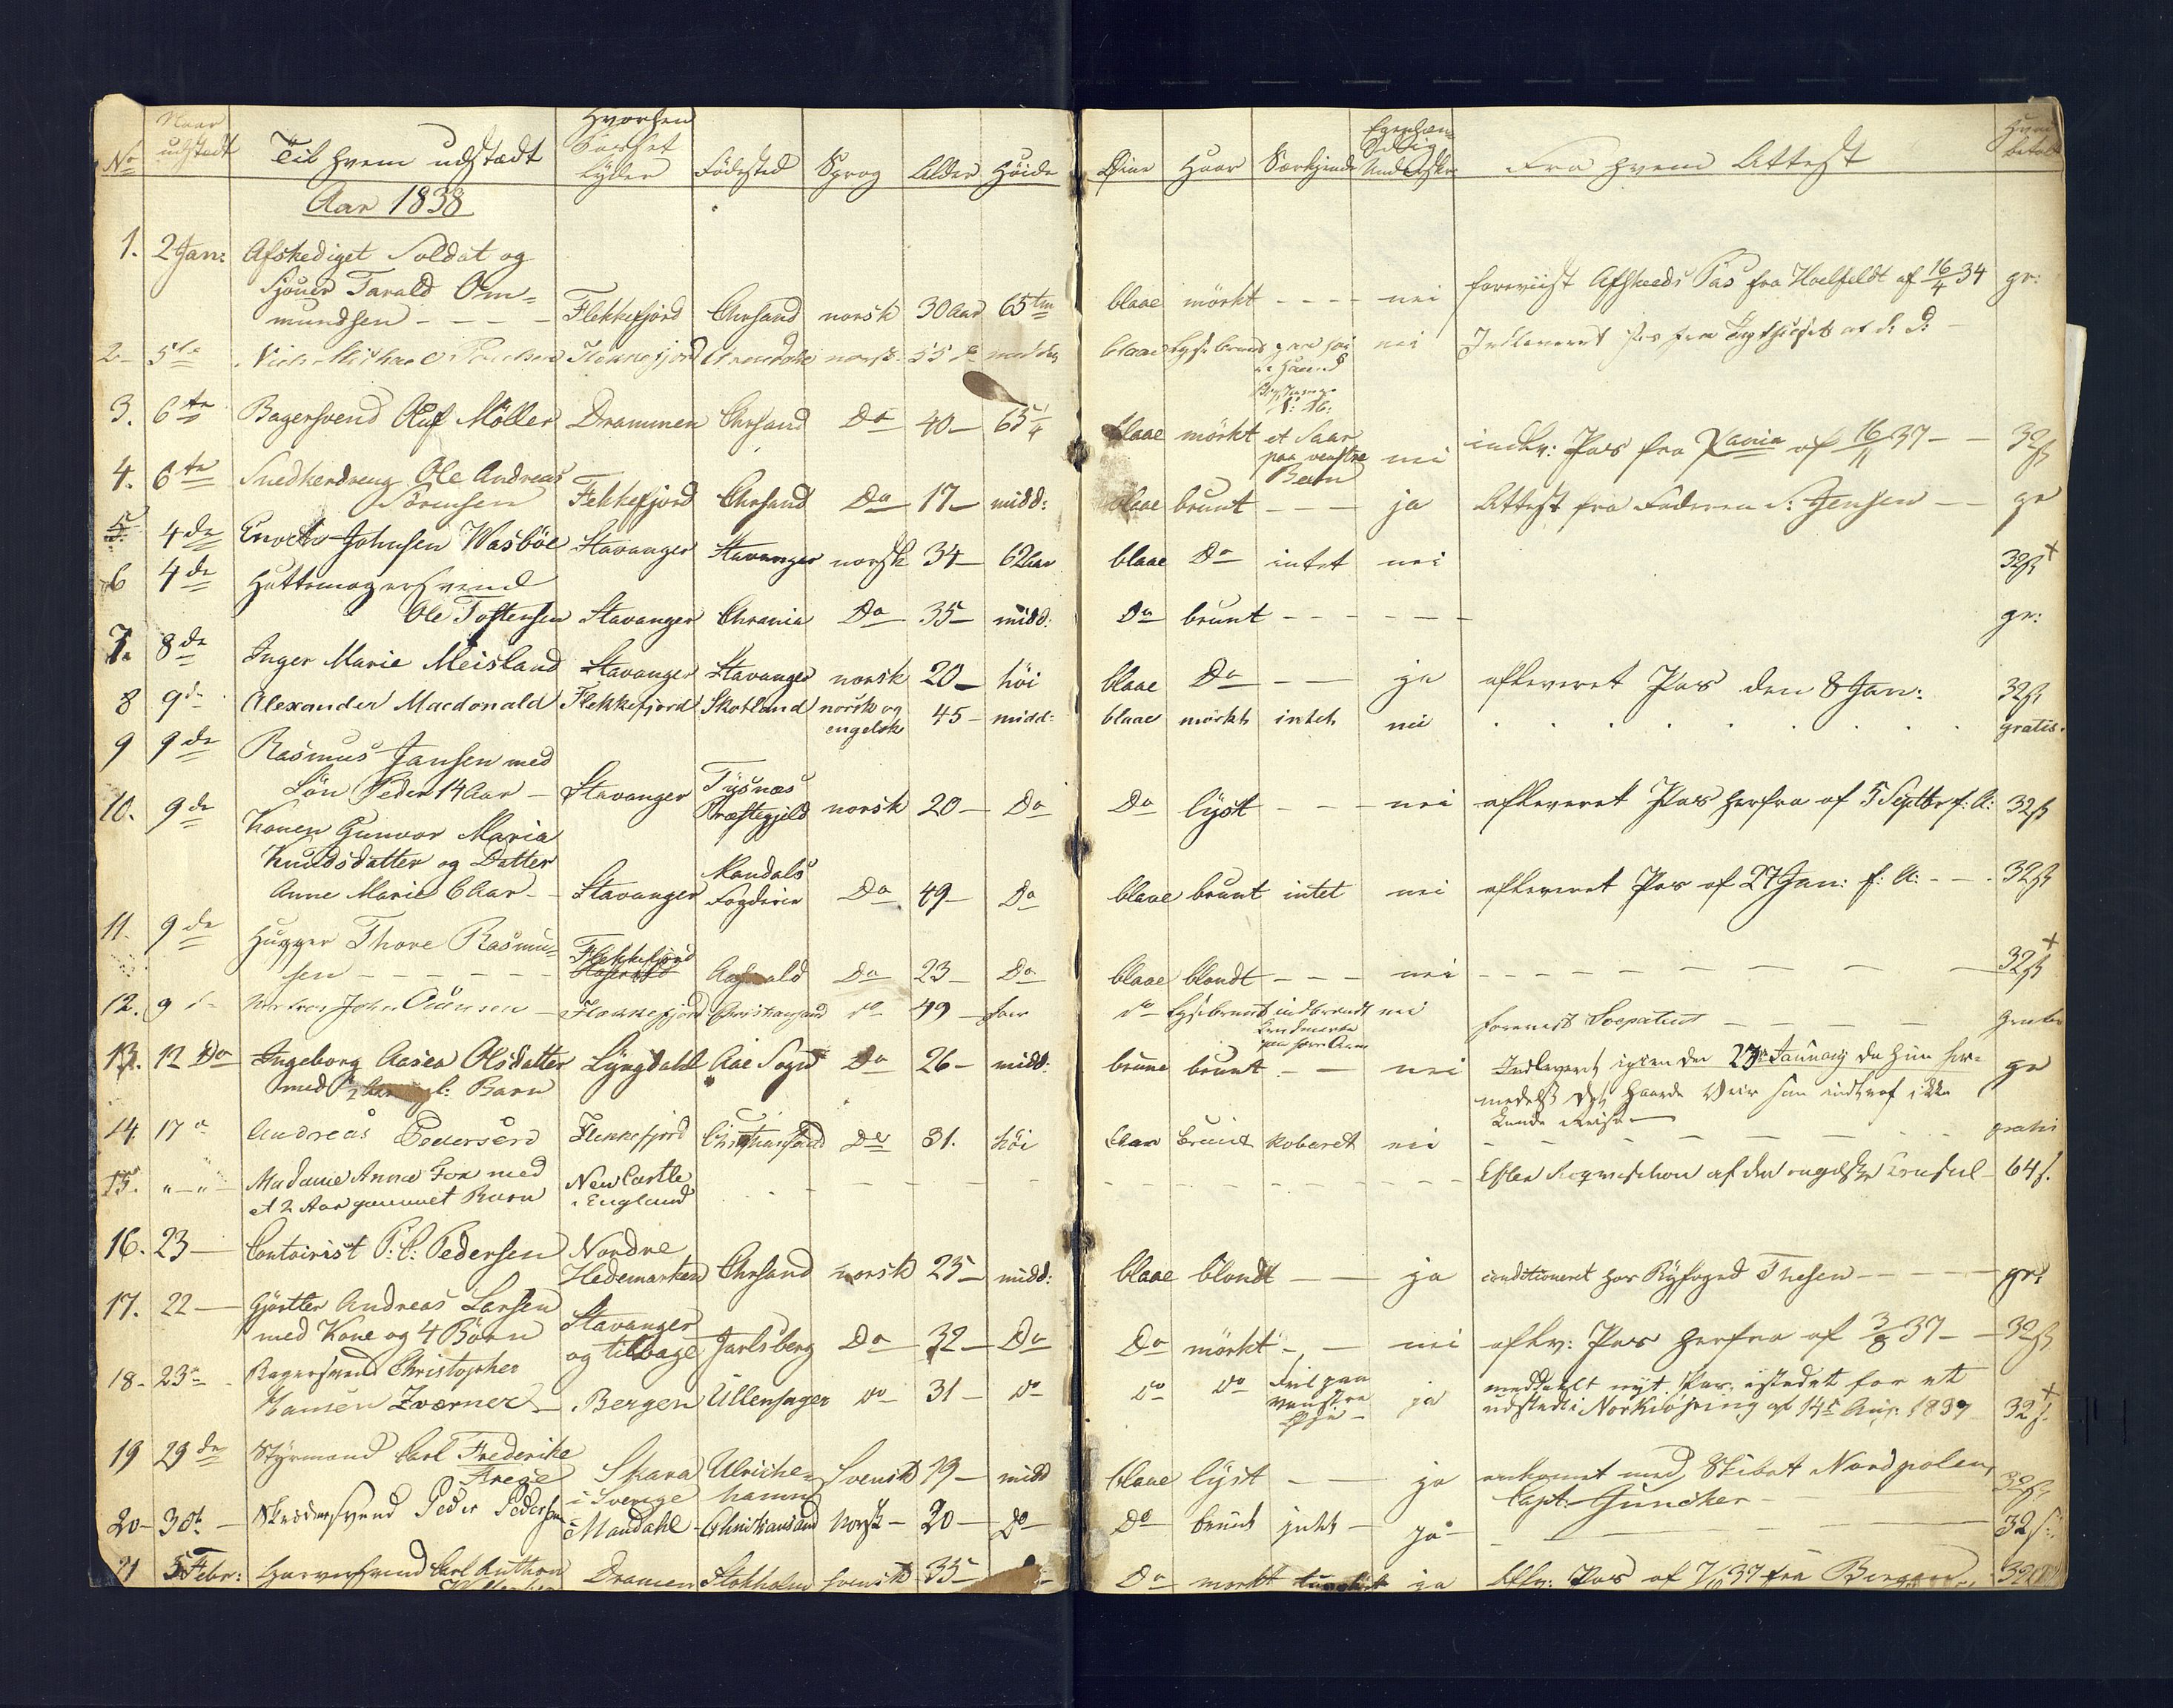 No Naar udstædt Til hvem udstædt Hvorhen Passet lyder Födested Sprog Alder Höide Öine Haar Særkjende Egenhæn- dig Underskr: Fra hvem Attest Hvad betalt
Aar 1838
1. 2 Jan: Afskediget Soldat og
Sjouer Tarald Om=
mundsen - - - Flekkefjord Chrsand norsk 30 Aar 65 tm blaae mörkt - - - nei foreviist Afskeds Pas fra Hoelfeldt af 16/4 34 gr:
2 5te Niels Michael Flekkefjord norsk 55 middels blaae lysebrunt nei Indleveret Pas fra
3. 6te Bagersvend Oluf Möller Drammen Chrsand Do 40 - 65 1/4 blaae mörkt et Saar
paa venstre
Been nei indlev: Pas fra Xania af 16/11 37 - - 32ß
4. 6te Snedkerdreng Ole Andreas
Sörensen Flekkefjord Chrsand Do 17 - midd: blaae brunt - - - ja Attest fra Faderen S: Jensen - - gr
5 4de Enoch Johnsen Wasböe Stavanger Stavanger norsk 34 - blaae Do intet nei 32ß +
6 4de Hattemagersvend
Ole Tostensen Stavanger Chrania Do 35 - midd: Do brunt - - - - - gr:
7. 8de Inger Marie Meisland Stavanger Stavanger norsk 20 - höi blaae Do - - ja afleveret Pas den 8 Jan: 32ß
8 9de Alexander Macdonald Flekkefjord Skotland norsk og
engelsk 45 - midd: blaae mörkt intet nei gratis.
9 9de Rasmus Jansen med
Sön Peder 14 Aar - Stavanger Tysnæs
Præstegjeld norsk 20 - Do Do lyst - - - nei afleveret Pas herfra af 5 Septbr f: A: 32ß
10. 9de Konen Gunvor Maria
Knudsdatter og Datter
Anne Marie 6 Aar - - Stavanger Mandals
Fogderie Do 49 - Do blaae brunt intet nei afleveret Pas af 27 Jan: f: A: - - - 32ß
11. 9de Hugger Thore Rasmu=
sen - - - - - - Flekkefjord Do 23 - Do blaae blondt - - - nei - - - - 32ß +
12. 9de John Flekkefjord Christiansand do 49 do lysebrunt indbrændt nei foreviist Söepatent - - - - gratis
13. 12 Do Ingeborg Aasea Olsdatter
med Barn Lyngdahl Aae Sogn Do 26 - midd: brune brunt - - nei Indleveret igjen den 23de Januarj da hun for-
medelst det haarde Veir som indtraf ikke
kunde reise - gr
14. 17 Andreas Pedersen Flekkefjord Christiansand Do 31. höi blaae bruunt kobaret nei - - - - gratis
15. "-" Madame Anna Fox med
et 2 Aar gammet Barn New Castle
i England - - - Efter Reqvisition af den engelske Consul - 64 ß.
16. 23 - Contoirist P: C: Pedersen Nordre
Hedemarken Chrsand norsk 25 - midd: blaae blondt - - ja conditioneret hos Byfoged Thesen - - - - gr:
17. 22 - Gjörtler Andreas Larsen
med Kone og 4 Börn Stavanger
og tilbage Jarlsberg Do 32 - Do Do mörkt - - nei aflev: Pas herfra af 3/8 37 - - 32ß
18 - 23 - Bagersvend Christopher
Hansen Zwerner - Bergen Ullensager do 31 - do do do Feil paa
venstre
Öie - ja meddeelt nyt Pas istedet for et
udstedt i Norkiøping af 14 Aug. 1837 32 ß. +
19 29de Styrmand Carl Frederike
Frege Skara
i Sverige Ulrice=
hamn Svensk 19 - midd blaae lyst - - ja ankomet med Skibet Nordpolen,
Capt. Güncher - 32ß
20 - 30t - Skræddersvend Peder Pedersen Mandahl Christiansand Norsk - 20 - Do Do bruunt intet - ja - - - 32 ß:
21 5 Febr: Garversvend Carl Anthon Dramen Stokholm svensk 35 - Do mörkt ja Aflev: Pas af 7/10 37 fra Bergen